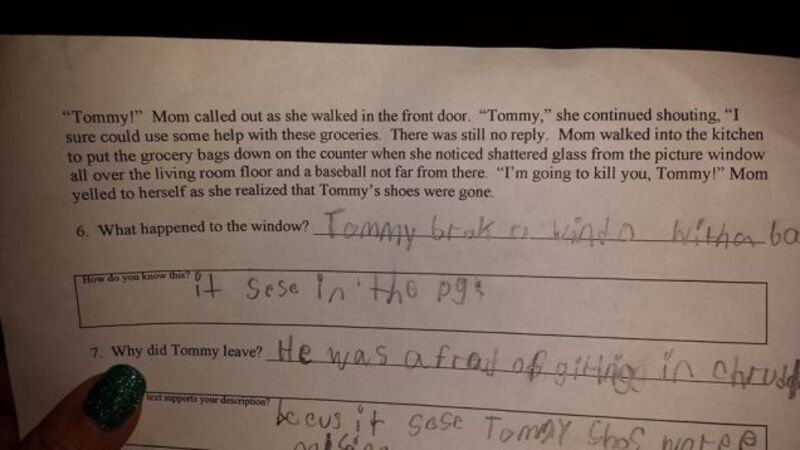 “Tommy!” Mom called out as she walked in the front door. “Tommy,” she continued shouting, “I
sure could use some help with these groceries. There was still no reply. Mom walked into the kitchen
to put the grocery bags down on the counter when she noticed shattered glass from the picture window
all over the living room floor and a baseball not far from there. “I'm going to kill you, Tommy!” Mom
yelled to herself as she realized that Tommy's shoes were gone.
6. What happened to the window? Tommy brok a windo witha ba
How do you know this?
it sese in the pgs
7. Why did Tommy leave? He was afrad of gitting in chrudd
text supports your description?
becus it sese Tommy shos